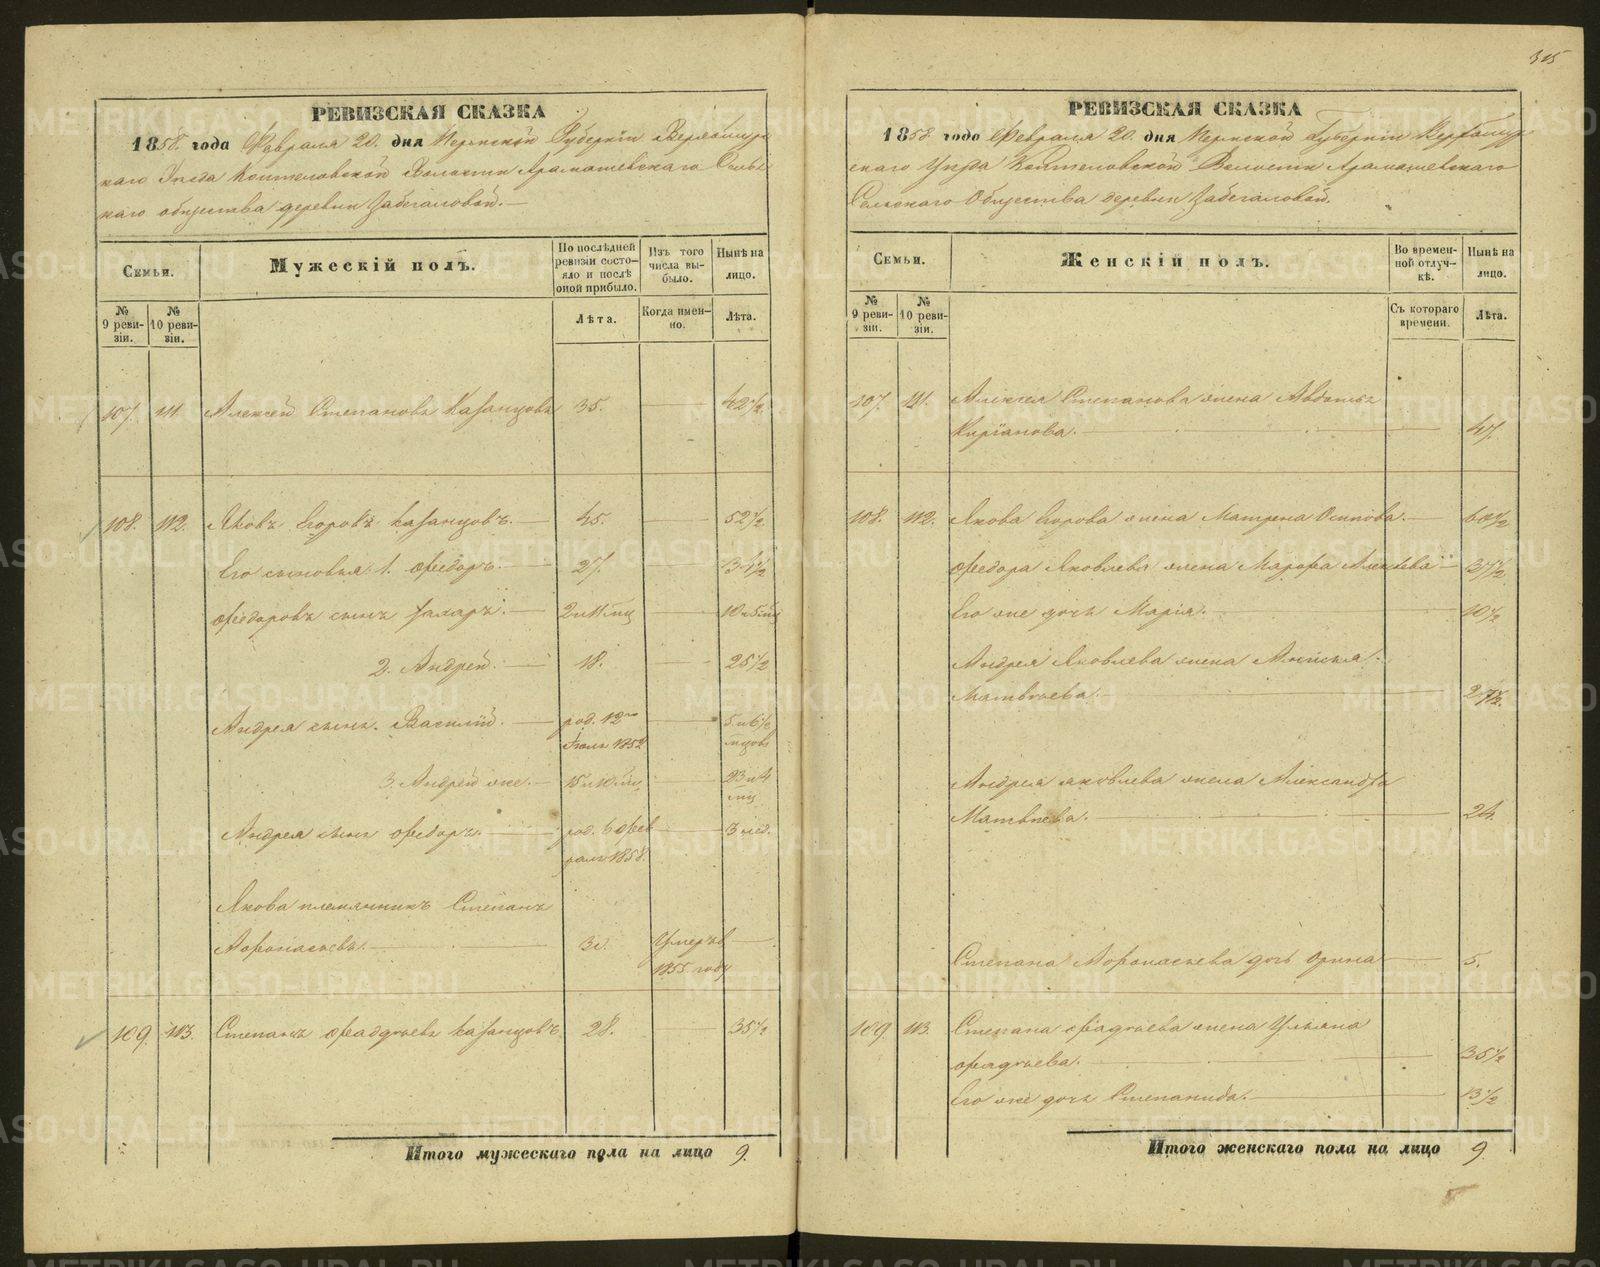 315
РЕВИЗСКАЯ СКАЗКА
1858 года Февраля 20. дня Пермской Губернiи Верхотурс
каго Уѣзда Коптеловской Волости Арамашевскаго Сельс
каго общества деревни Забегаловой.
Семьи.
Мужескiй полъ.
По послѣдней ревизiи состояло и послѣ оной прибыло.
Изъ того числа выбыло.
Нынѣ на лицо.
№ 9 ревизiи.
№ 10 ревизiи.
Лѣта.
Когда именно.
Лѣта.
107. 111. Алексѣй Степановъ Казанцовъ 35. 42½
108. 112. Яковъ Егоровъ Казанцовъ. 45. 52½
Его сыновья 1. Федоръ. 27. 34½
Федоровъ сынъ Захаръ.
2. Андрей. 18. 25½
Андрея сынъ. Василiй. род. 12го
Iюля 1852
5 и 6½
мцовъ
3. Андрей же. 15 и 10 мц 23 и 4
мц
Андрея сынъ Федоръ. род. 6 фев
раля 1858. 3 нед.
Якова племянникъ Степанъ
Афонасьевъ. 30. Умеръ в
1855 году
109. 113. Степанъ Фадѣевъ Казанцовъ 28. 35½
Итого мужескаго пола на лицо 9.
РЕВИЗСКАЯ СКАЗКА
1858 года Февраля 20. дня Пермской Губернiи Верхотур
скаго Уѣзда Коптеловской Волости Арамашевскаго
Сельскаго Общества деревни Забегаловой.
Семьи.
Женскiй полъ.
Во временной отлучкѣ.
Нынѣ на лицо.
№ 9 ревизiи.
№ 10 ревизiи.
Съ котораго времени.
Лѣта.
107. 111. Алексѣя Степанова жена Авдотья
Кирiанова. 47.
108. 112. Якова Егорова жена Матрена Осипова. 60½
Федора Яковлева жена Марфа Алексѣева 37½
Его же дочь Марiя. 10½
Андрея Яковлева жена
Матвѣева. 27½.
Андрея Яковлева жена Александра
Матвѣева. 24.
Степана Афонасьева дочь Орина 5.
109. 113. Степана Фадѣева жена Ульяна
Фадѣева. 35½
Его же дочь Степанида. 13½
Итого женскаго пола на лицо 9.
METRIKI.GASO-URAL.RU